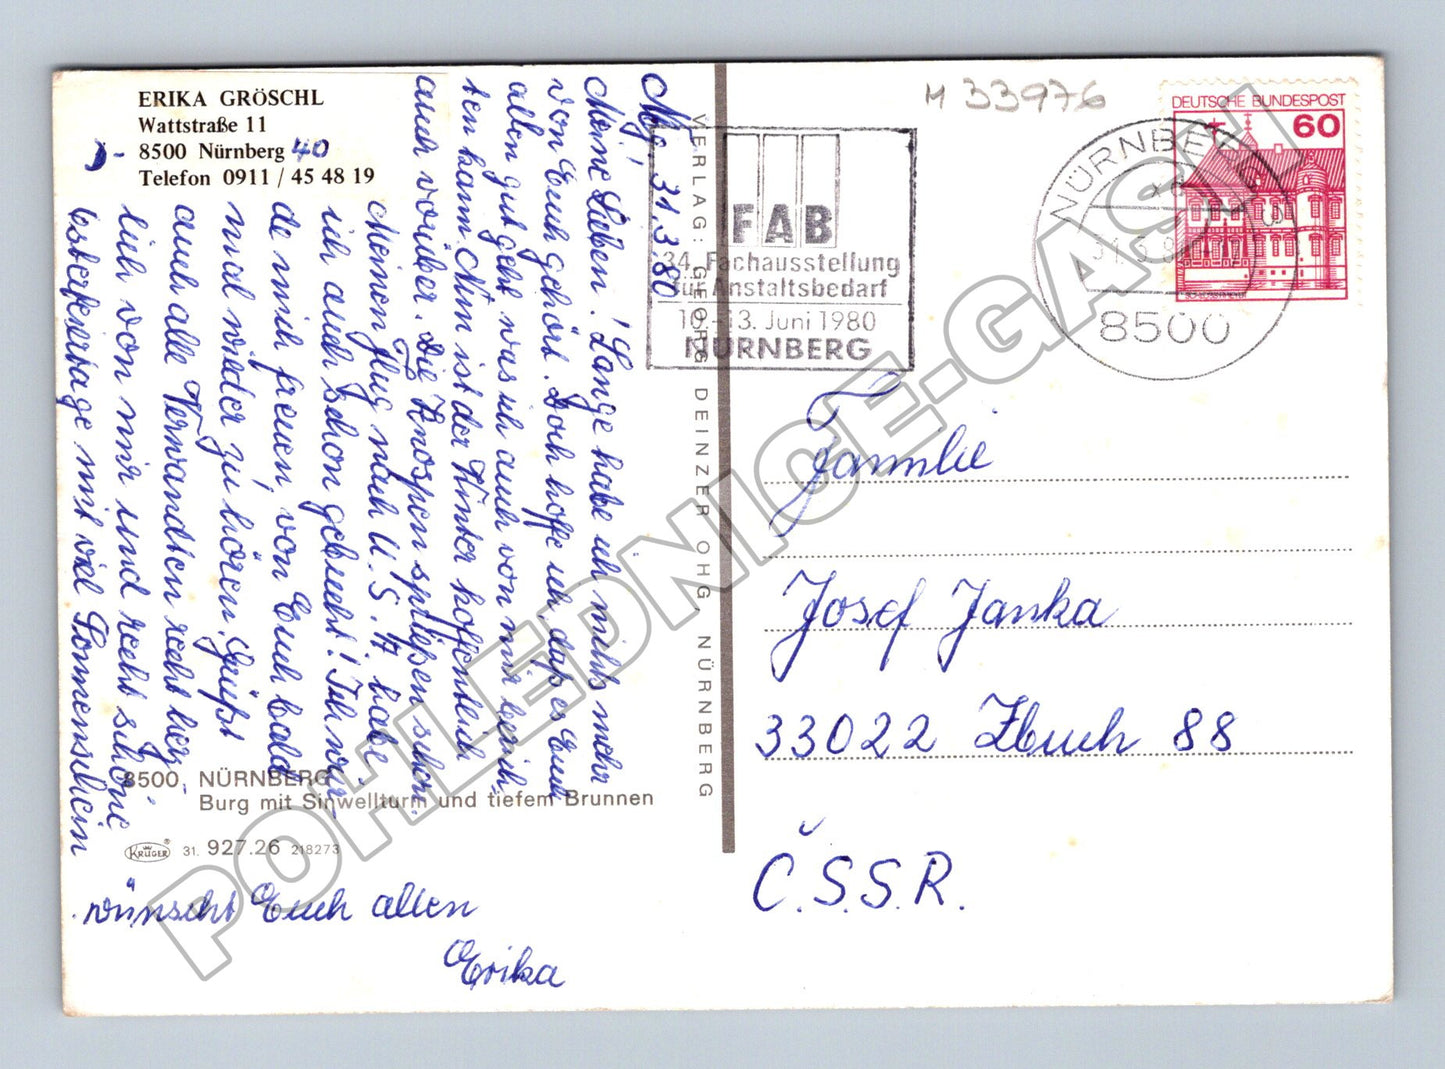 ERIKA GRÖSCHL
Wattstraße 11
8500 Nürnberg 40
Telefon 0911 / 45 48 19
Nbg. 31.3.80
Meine Lieben! Lange habe ich nichts mehr
von Euch gehört. Doch hoffe ich, daß es Euch
allen gut geht was ich auch von mir berich-
ten kann. Nun ist der Winter hoffentlich
auch vorüber. Die Knospen sprießen schon.
Meinen Flug nach U.S.A habe
ich auch schon gebucht! Ich wür-
de mich freuen, von Euch bald
mal wieder zu hören. Grüßt
auch alle Verwandten recht herz-
lich von mir und recht schöne
Osterfeiertage mit viel Sonnenschein
wünscht Euch allen
Erika
8500 NÜRNBERG
Burg mit Sinwellturm und tiefem Brunnen
KRÜGER
31. 927.26 218273
VERLAG: GEORG DEINZER OHG, NÜRNBERG
M 33976
FAB
34. Fachausstellung
für Anstaltsbedarf
10.-13. Juni 1980
NÜRNBERG
NÜRNBERG
8500
DEUTSCHE BUNDESPOST
60
Familie
Josef Janka
33022 Zbuch 88
Č.S.S.R.
POHLEDNICE-GASH